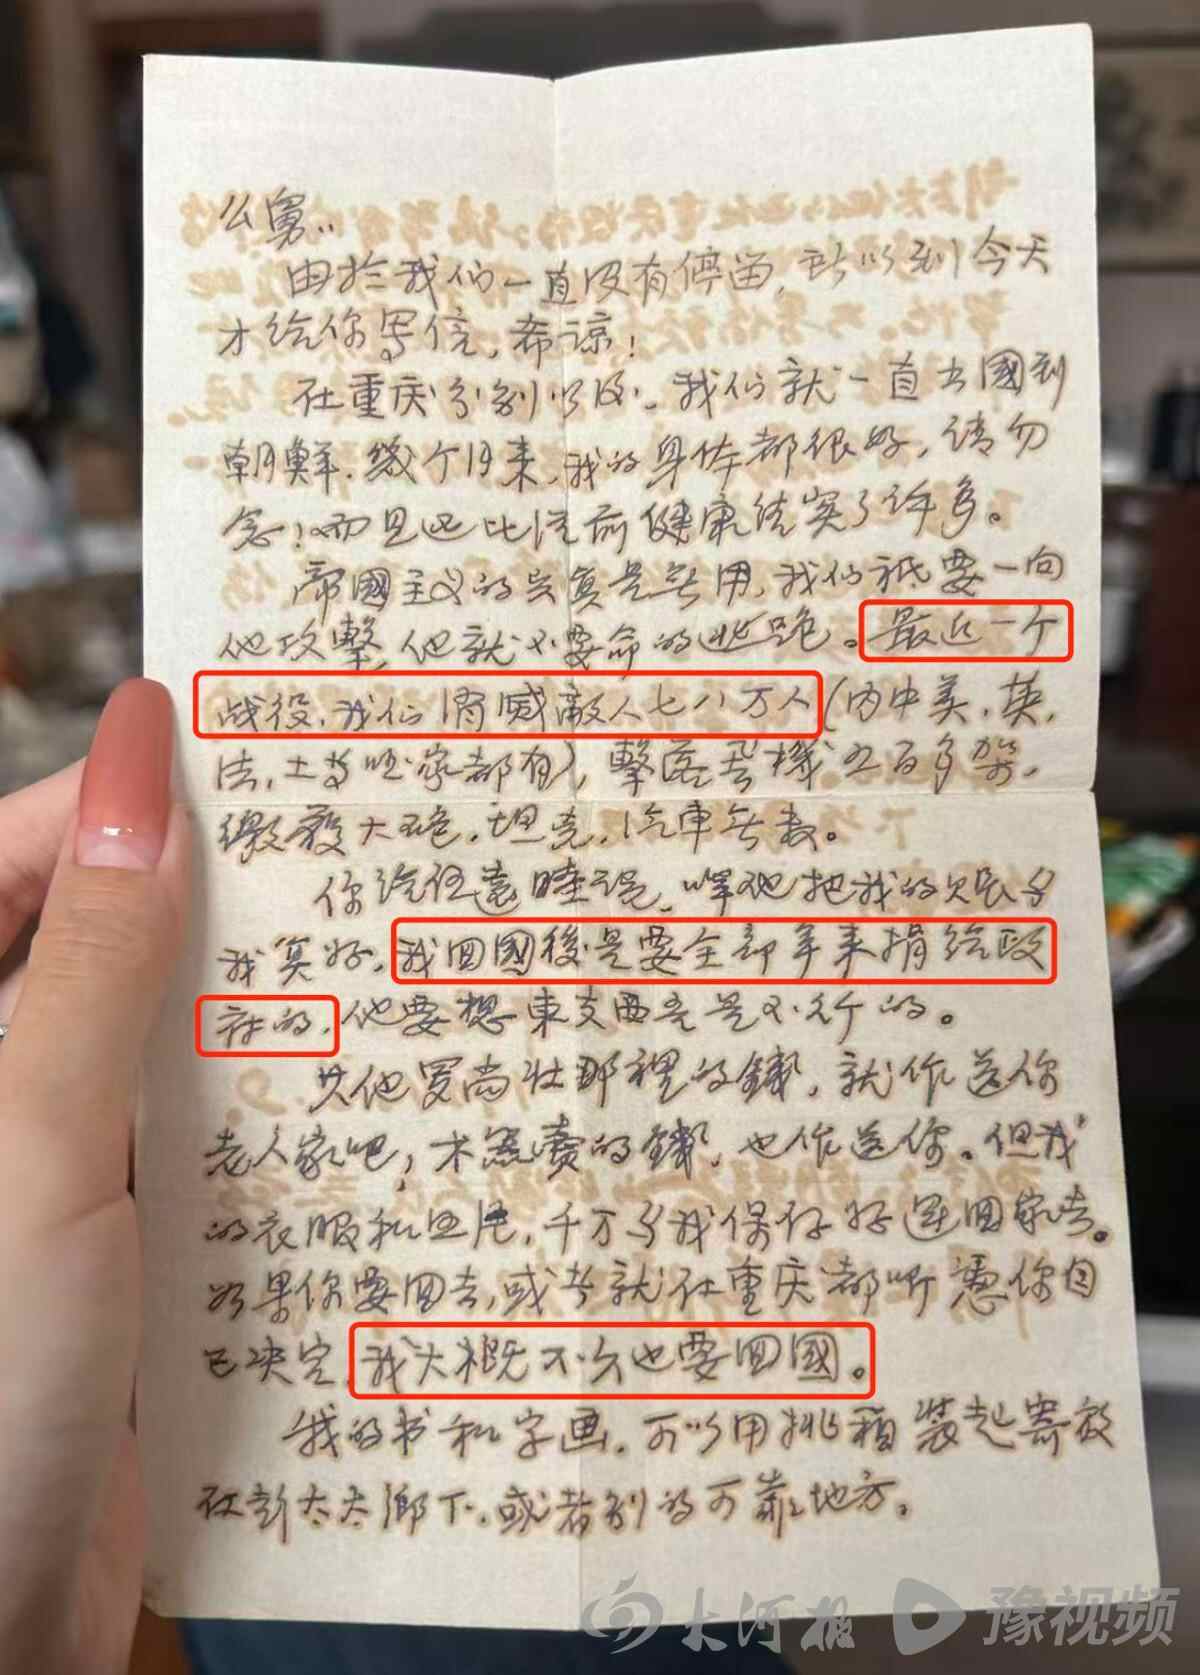 么舅：
由於我们一直没有停留，所以到今天
才给你写信，希谅！
在重庆分别以后，我们就一直出國到
朝鮮．幾个月来，我的身体都很好，请勿
念！而且还比從前健康结实了许多。
帝國主义的兵真是無用，我们祇要一向
他攻擊，他就不要命的逃跑。最近一个
战役，我们消滅敵人七八万人（内中美，英，
法，土等国家都有），擊落飛機五百多架，
缴获大砲，坦克，汽車無数。
你给任遠睦说，喊他把我的账
我算好，我回國後是要全部拿来捐给政
府的，他要想東支西吾是不行的。
其他罗尚壮那裡的錢，就作送你
老人家吧，木無費的錢，也作送你。但我
的衣服和，千万与我保存好运回家去。
如果你要回去，或者就在重庆都听憑你自
己决定，我大概不久也要回國。
我的书和字画，可以用挑箱裝起寄放
在彭太太鄉下．或者别的可靠地方。
大河报 豫视频